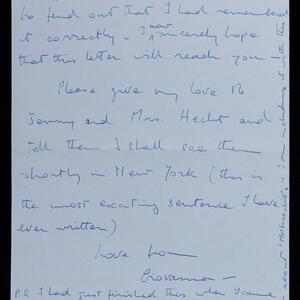 he find out that I had remembered
it correctly - I now sincerely hope
that this letter will reach you -
Please give my love to
Jenny and Mrs. Hecht and
tell them I shall see them
shortly in New York (this is
the most exciting sentence I have
ever written)
Love from
Giovanna -
P.S. I had just finished this when I came
about